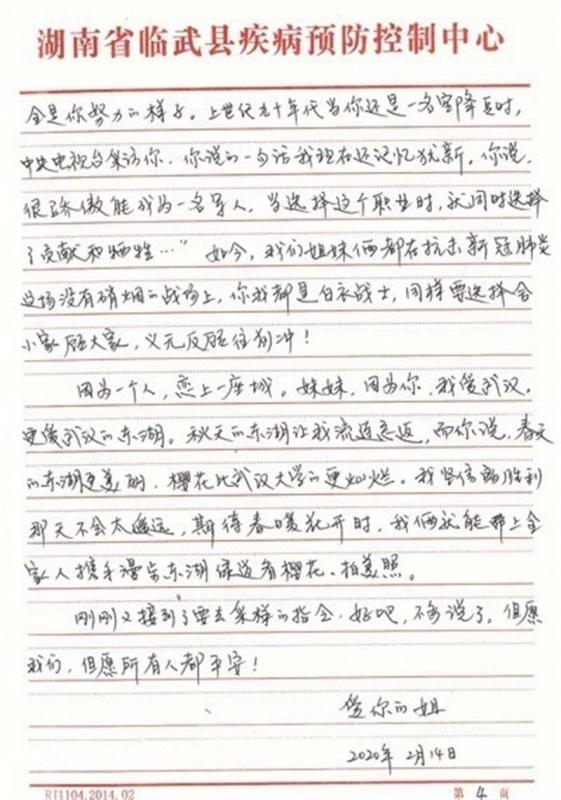 湖南省临武县疾病预防控制中心
全是你努力的样子。上世纪九十年代当你还是一名空降兵时,
中央电视台采访你,你说的一句话我现在还记忆犹新。你说,
很骄傲能成为一名军人,当选择这个职业时,就同时选择
了贡献和牺牲…”如今,我们姐妹俩都在抗击新冠肺炎
这场没有硝烟的战场上,你我都是白衣战士,同样要选择舍
小家顾大家,义无反顾往前冲!
因为一个人,恋上一座城。妹妹,因为你,我爱武汉,
更爱武汉的东湖。秋天的东湖让我流连忘返,而你说,春天
的东湖更美丽,樱花比武汉大学的更灿烂。我坚信离胜利
那天不会太遥远,期待春暖花开时,我俩就能带上全
家人携手漫步东湖绿道看樱花、拍美照。
刚刚又接到了要去采样的指令,好吧,不多说了。但愿
我们,但愿所有人都平安!
爱你的姐
2020年2月14日
RJ1104.2014.02 第 4 页